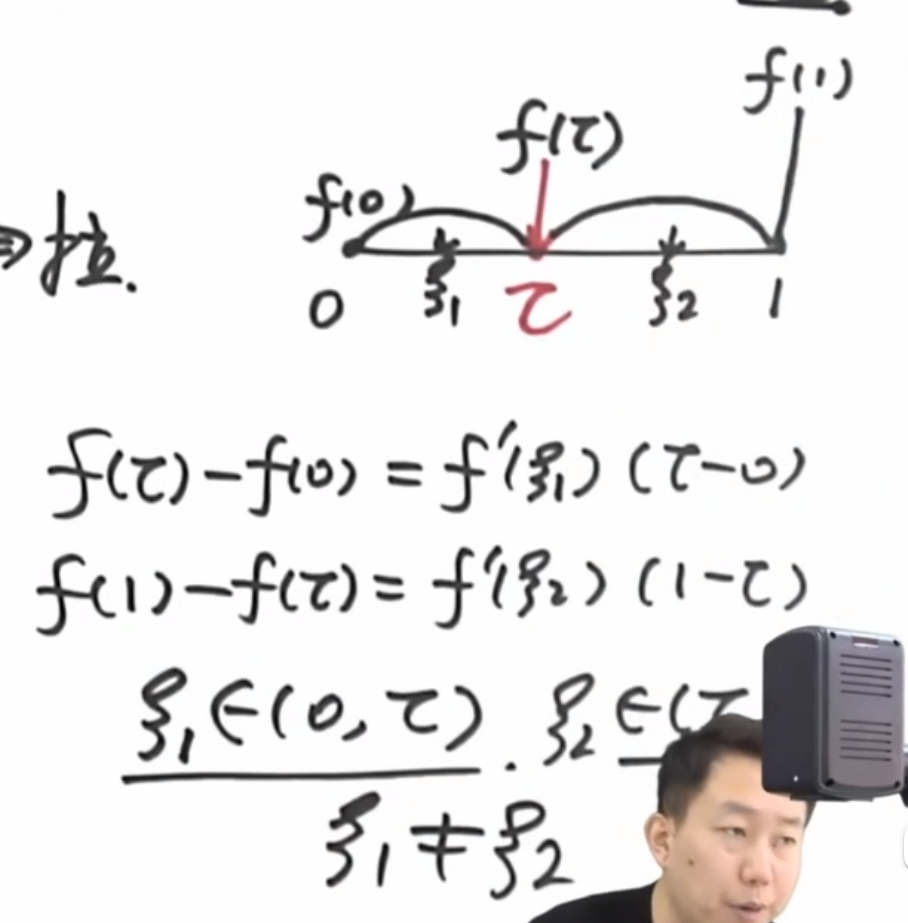 f(1)
f(τ)
f(0)
⇒拉.
0 ξ₁ τ ξ₂ 1
f(τ)-f(0)=f'(ξ₁)(τ-0)
f(1)-f(τ)=f'(ξ₂)(1-τ)
ξ₁∈(0,τ).ξ₂∈(τ
ξ₁≠ξ₂